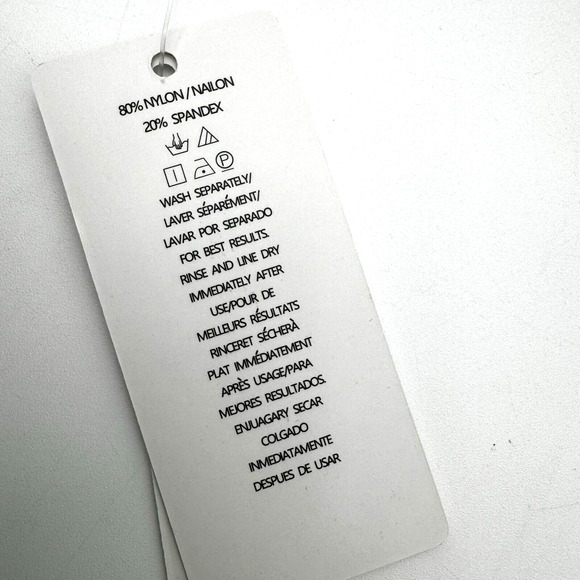 80% NYLON / NAILON
20% SPANDEX
P
WASH SEPARATELY/
LAVER SÉPARÉMENT/
LAVAR POR SEPARADO
FOR BEST RESULTS.
RINSE AND LINE DRY
IMMEDIATELY AFTER
USE/POUR DE
MEILLEURS RÉSULTATS
RINCERET SÉCHERÀ
PLAT IMMÉDIATEMENT
APRÈS USAGE/PARA
MEJORES RESULTADOS.
ENJUAGARY SECAR
COLGADO
INMEDIATAMENTE
DESPUES DE USAR